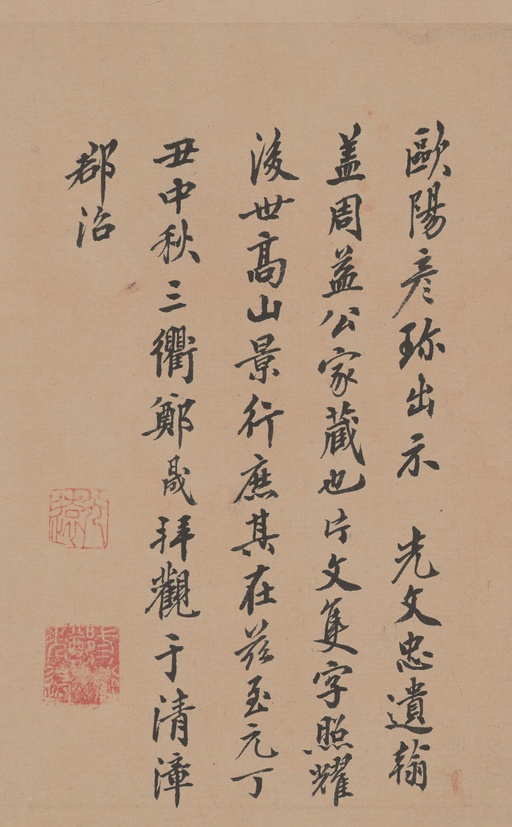 歐陽彦珎出示　先文忠遺翰
盖周益公家藏也片文隻字照耀
後世高山景行庶其在兹至元丁
丑中秋三衢鄭晟拜觀于清漳
郡治